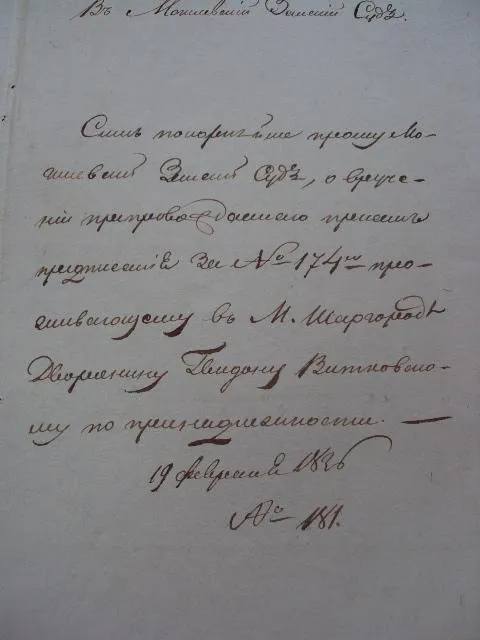 Въ Могилевскій Земскій Судъ.
Симъ покорнѣйше прошу Мо-
гилевскій Земскій Судъ, о вруче-
ніи препровождаемаго при семъ
предписанія за № 174мъ про-
живающему въ М. Шаргородѣ
Дворянину Гвидону Витковско-
му по принадлежности. —
19 февраля 1826
№ 181.